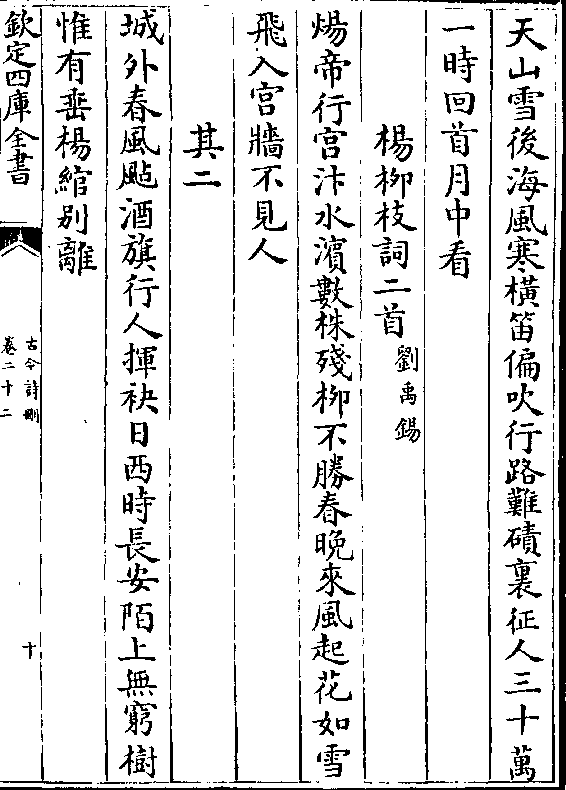 天山雪後海風寒橫笛偏吹行路難磧裏征人三十萬
一時回首月中看
楊柳枝詞二首劉禹錫
煬帝行宮汴水濱數株殘柳不勝春晚來風起花如雪
飛入宮牆不見人
其二
城外春風颭酒旗行人揮袂日西時長安陌上無窮樹
惟有垂楊綰别離
欽定四庫全書
古今詩刪
卷二十二
十